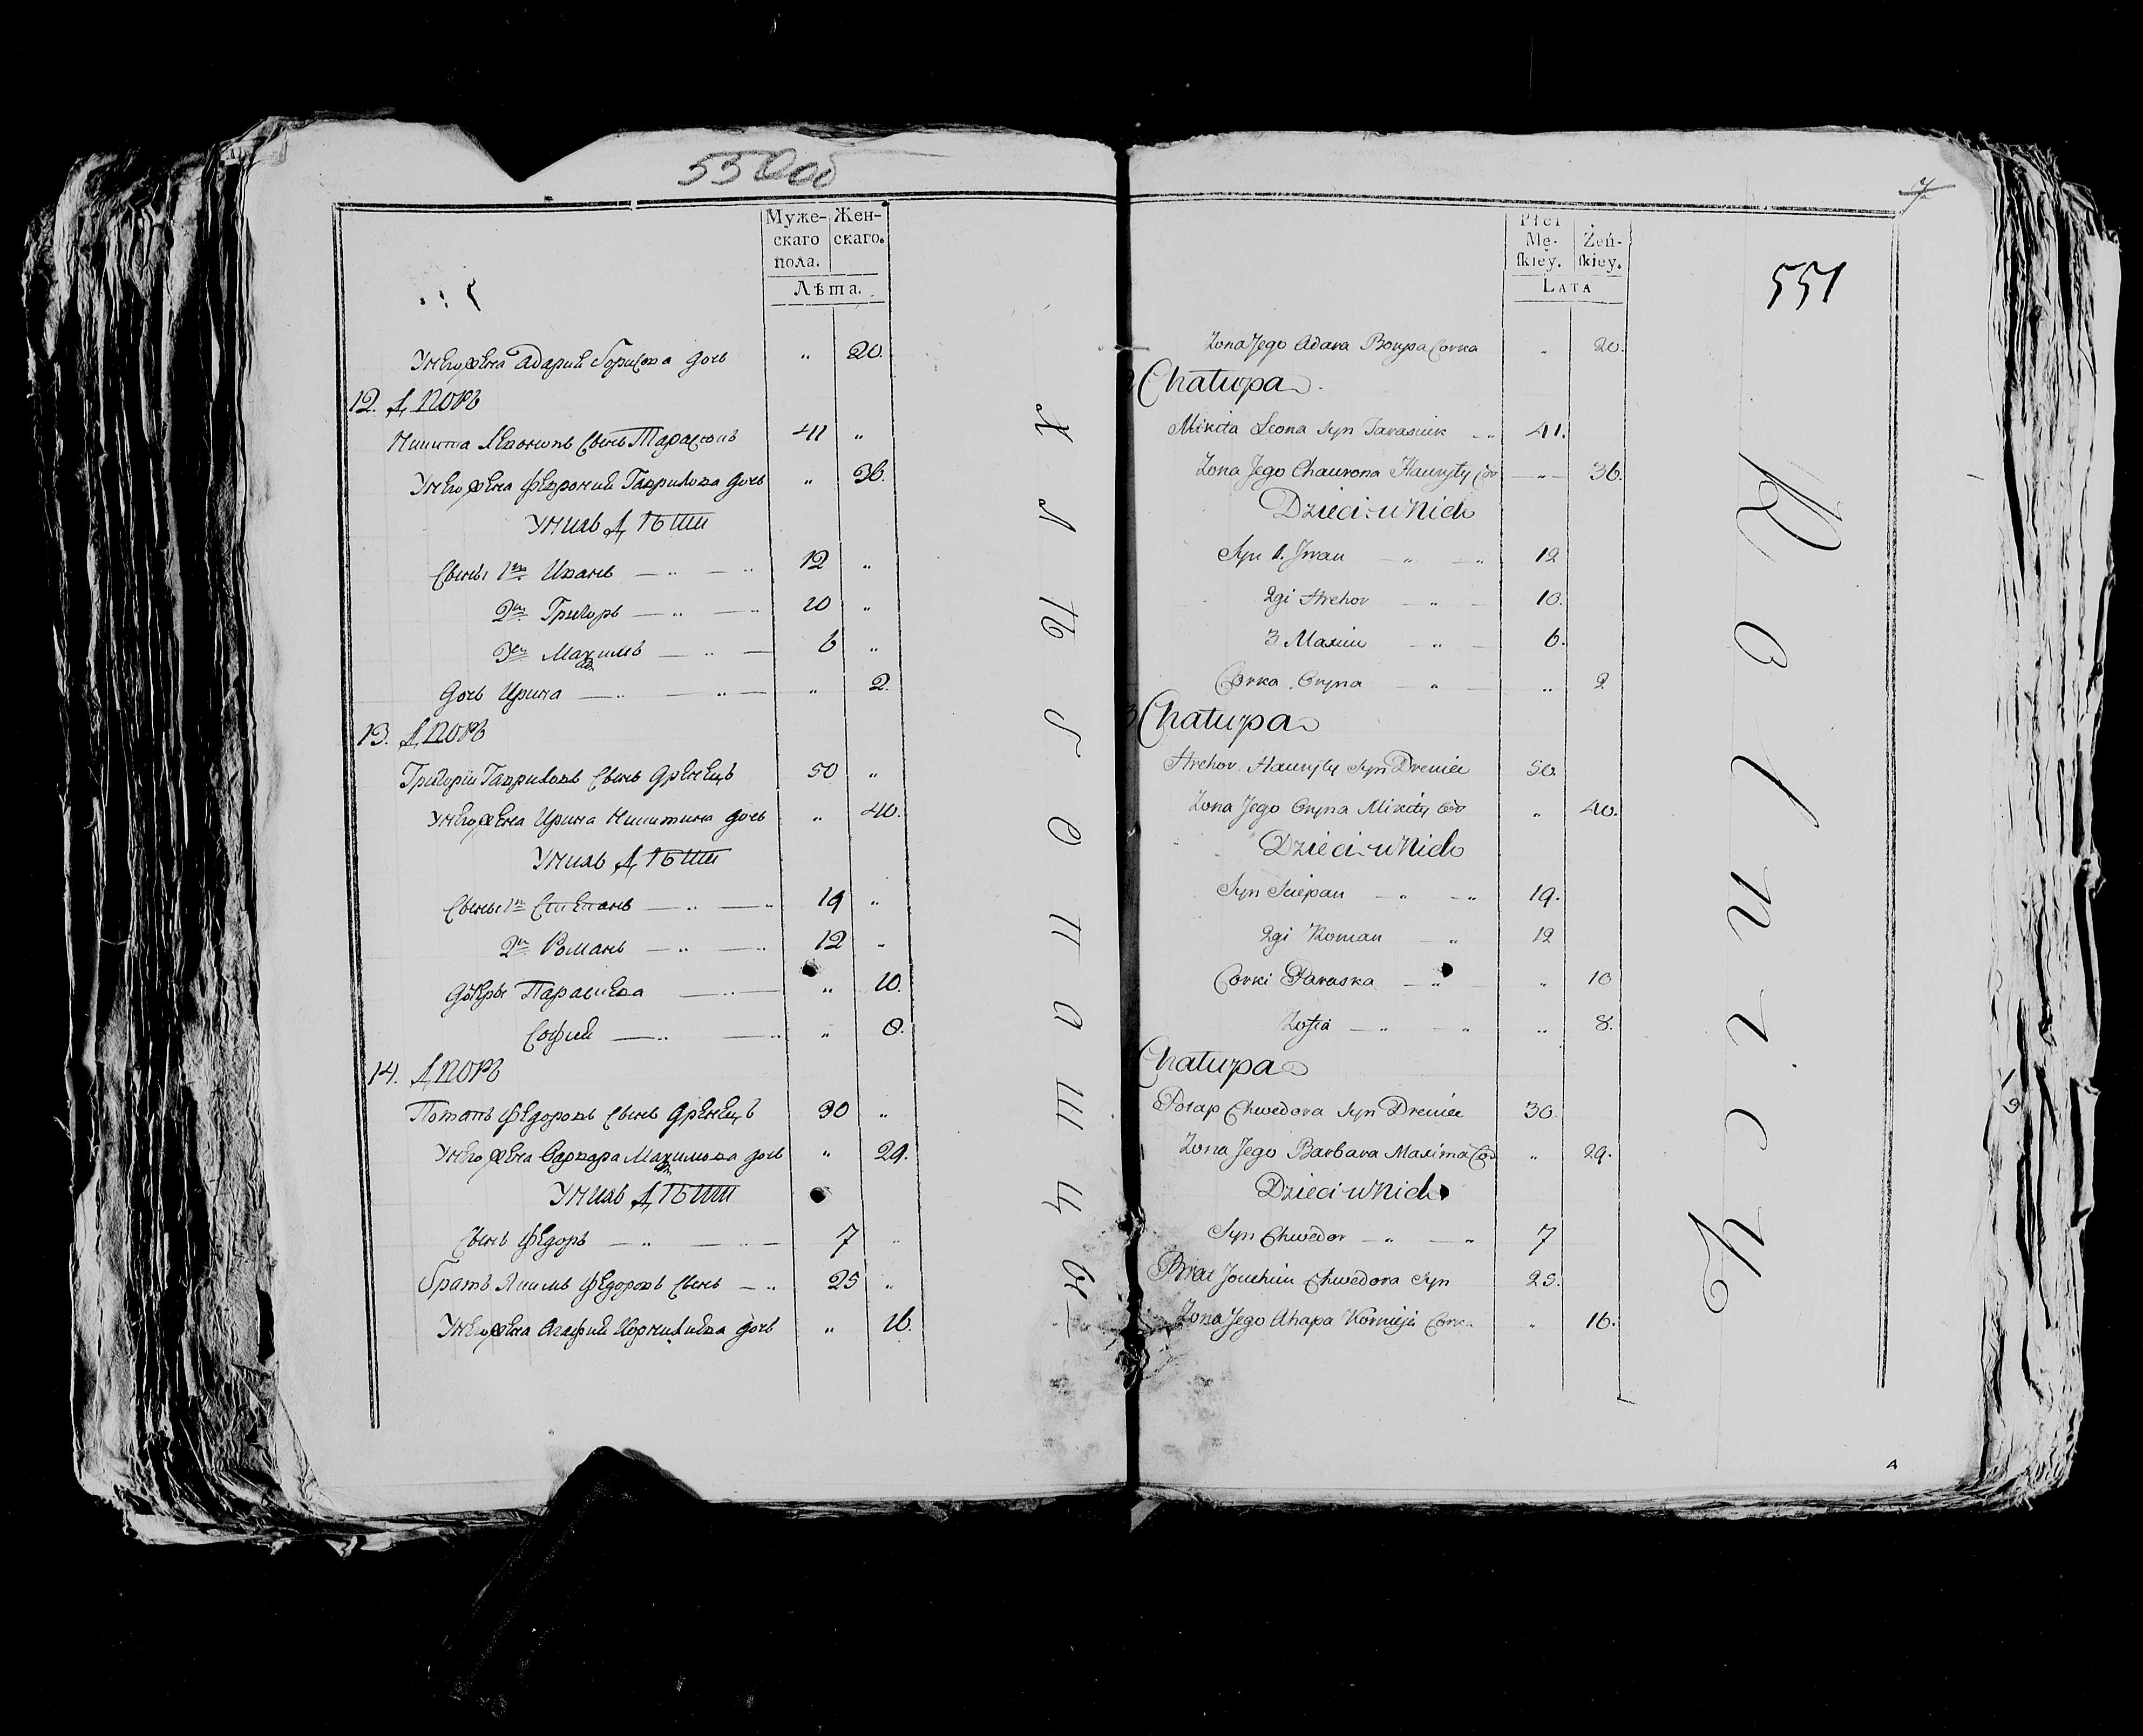 550об
Муже- Жен-
скаго скаго.
пола.
Лѣта.
Унего жена Адария Борисова дочь " 20.
12. Дворъ
Никита Леоновъ сынъ Тарасюкъ 41 "
Унего жена Феврония Гаврилова дочь " 36.
Унихъ Дѣти
Сыны 1й Иванъ — " — " 12 "
2й Григоръ — " — " 10 "
3й Максимъ — " — 6 "
Дочь Ирина — " — " — " 2.
13. Дворъ
Григорiй Гавриловъ сынъ Дренецъ 50 "
Унего жена Ирина Никитина дочь " 40.
Унихъ Дѣти
Сыны 1й Степанъ — " — " 19 "
2й Романъ — " — " 12 "
Дочери Параскева — " — " 10.
София — " — " " 8.
14. Дворъ
Потапъ Федоровъ сынъ Дренецъ 30 "
Унего жена Варвара Максимова дочь " 29.
Унихъ Дѣти
Сынъ Федоръ — " — " — 7 "
Братъ Якимъ Федоровъ сынъ — " 25 "
Унего жена Агафия дочь " 16.
Хлѣбопашцы
7
551
Płci
Mę- Żeń-
ſkiey. ſkiey.
LATA
Żona Jego Adara Borysa Corka " 20.
Chałupa
Mikita Leona Syn Tarasiuk — " 41.
Żona Jego Chaurona Hauryły Cor — " — 36.
Dzieci u Nich
Syn 1. Jwan — " — " 12
2gi Hrehor — " — 10.
3 Maxim — " — 6.
Corka Oryna — " — " 2
Chałupa
Hrehor Hauryły Syn Dreniec 50.
Żona Jego Oryna Mikity Cor " 40.
Dzieci u Nich
Syn Sciepan — " — " 19.
2gi Roman — " 12
Corki Paraska — " — " 10
Zofia — " — " " 8.
Chałupa
Potap Chwedora Syn Dreniec 30.
Żona Jego Barbara Maxima Cor " 29.
Dzieci u Nich
Syn Chwedor — " — " 7
Brat Jouchim Chwedora Syn 25.
Żona Jego Ahapa Kornieja Cork " 16.
Rolnicy